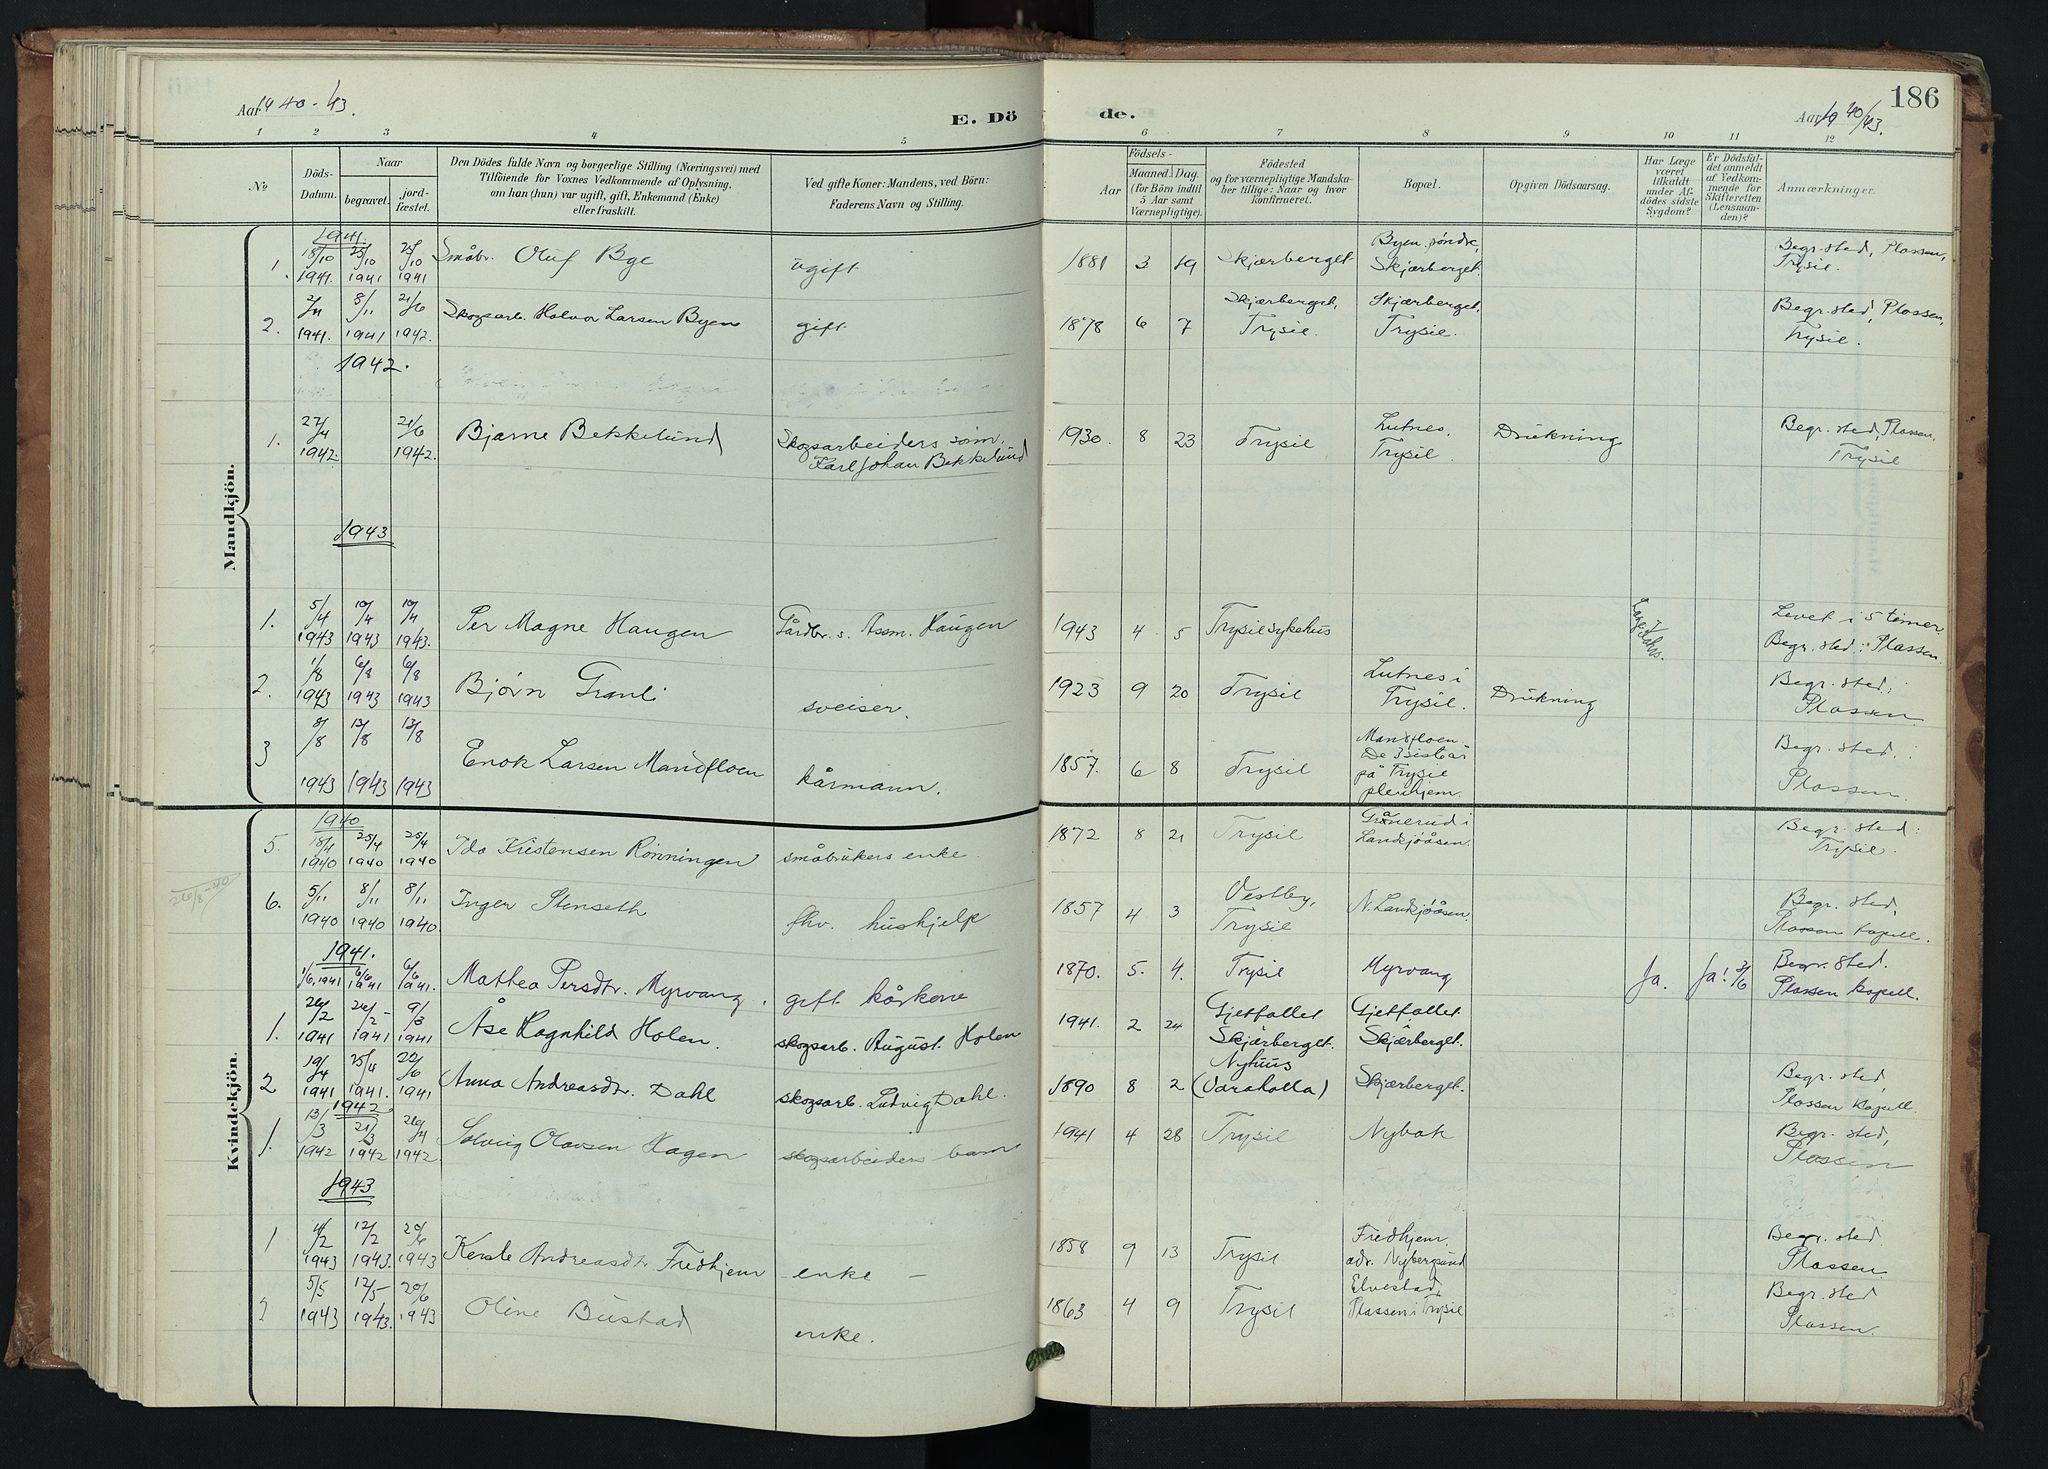 Aar 1940-43.
E. Dö
de.
Aar 1940/43.
186
1 2 3 4 5 6 7 8 9 10 11 12
No
Döds-
Datum.
Naar
begravet.
jord-
fæstet.
Den Dödes fulde Navn og borgerlige Stilling (Næringsvei) med
Tilföiende for Voxnes Vedkommende af Oplysning,
om han (hun) var ugift, gift, Enkemand (Enke)
eller fraskilt.
Ved gifte Koner: Mandens, ved Börn:
Faderens Navn og Stilling.
Födsels-
Aar
Maaned Dag.
(for Börn indtil
5 Aar samt
Værnepligtige).
Födested
og for værnepligtige Mandska-
ber tillige: Naar og hvor
konfirmeret.
Bopæl.
Opgiven Dödsaarsag.
Har Læge
været
tilkaldt
under Af-
dödes sidste
Sygdom?
Er Dödsfal-
det anmeldt
af Vedkom-
mende for
Skifteretten
(Lensman-
den)?
Anmærkninger.
Mandkjön.
1941
1. 18/10 1941. 25/10 1941 25/10 1941 Småbr. Oluf Bye ugift. 1881 3 19 Skjærberget Byen søndre, Skjærberget. Begr. sted, Plassen, Trysil.
2. 2/11 1941. 8/11 1941 21/6 1942. Skogsarb. Halvor Larsen Byen gift. 1878 6 7 Skjærberget, Trysil. Skjærberget, Trysil. Begr. sted, Plassen, Trysil.
1942.
1. 27/4 1942. 21/6 1942. Bjarne Bekkelund Skogsarbeiders sønn. Karl Johan Bekkelund 1930. 8 23 Trysil Lutnes, Trysil. Drukning Begr. sted, Plassen. Trysil
1943
1. 5/4 1943 10/4 1943 10/4 1943. Per Magne Haugen Gårdbr. s. Assm. Haugen 1943 4 5 Trysil sykehus Levet i 5 timer. Begr. sted: Plassen.
2. 1/8 1943 6/8 1943 6/8 1943 Bjørn Granli sveiser. 1923 9 20 Trysil Lutnes i Trysil. Drukning Begr. sted: Plassen
3 8/8 1943 13/8 1943 13/8 1943 Enok Larsen Mandfloen kårmann. 1857. 6 8 Trysil Mandfloen. De 3 siste år på Trysil pleiehjem. Begr. sted: Plassen.
Kvindekjön.
1940
5. 18/4 1940 25/4 1940 25/4 1940 Ida Kristensen Rønningen småbrukers enke. 1872 8 21 Trysil Grånerud i Landsjøåsen. Begr. sted: Trysil.
26/8-40
6. 5/11 1940 8/11 1940 8/11 1940. Inger Stenseth fhv. hushjelp 1857 4 3 Vestby, Trysil N. Landsjøåsen. Begr. sted, Plassen kapell.
1941.
1/6. 1941 6/6 1941 6/6 1941. Mathea Persdtr. Myrvang. gift kårkone 1870. 5. 4. Trysil Myrvang Ja. Ja! 3/6 Begr. sted. Plassen kapell.
1. 26/2 1941 26/2- 1941 9/3 1941 Åse Ragnhild Holen. skogsarb. August Holen 1941. 2 24 Gjetfallet Skjærberget. Gjetfallet i Skjærberget.
2 19/4 1941 25/4 1941. 22/6 1941 Anna Andreasdtr. Dahl skogsarb. Ludvig Dahl. 1890 8 2 Nyhuus (Varaholla) Skjærberget. Begr. sted, Plassen kapell.
1942
1. 13/3 1942 21/3 1942 26/4 1942. Solveig Olavsen Hagen skogsarbeiders barn 1941 4 28 Trysil Nybak Begr. sted, Plassen
1943
1 4/2 1943 12/2 1943. 20/6 1943 Kersle Andreasdtr Fredhjem enke - 1858 9 13 Trysil Fredhjem. adr. Nybergsund Begr. sted. Plassen.
2 5/5 1943 12/5 1943. 20/6 1943 Oline Bustad enke. 1863 4 9 Trysil Elvestad, Plassen i Trysil Begr. sted Plassen.